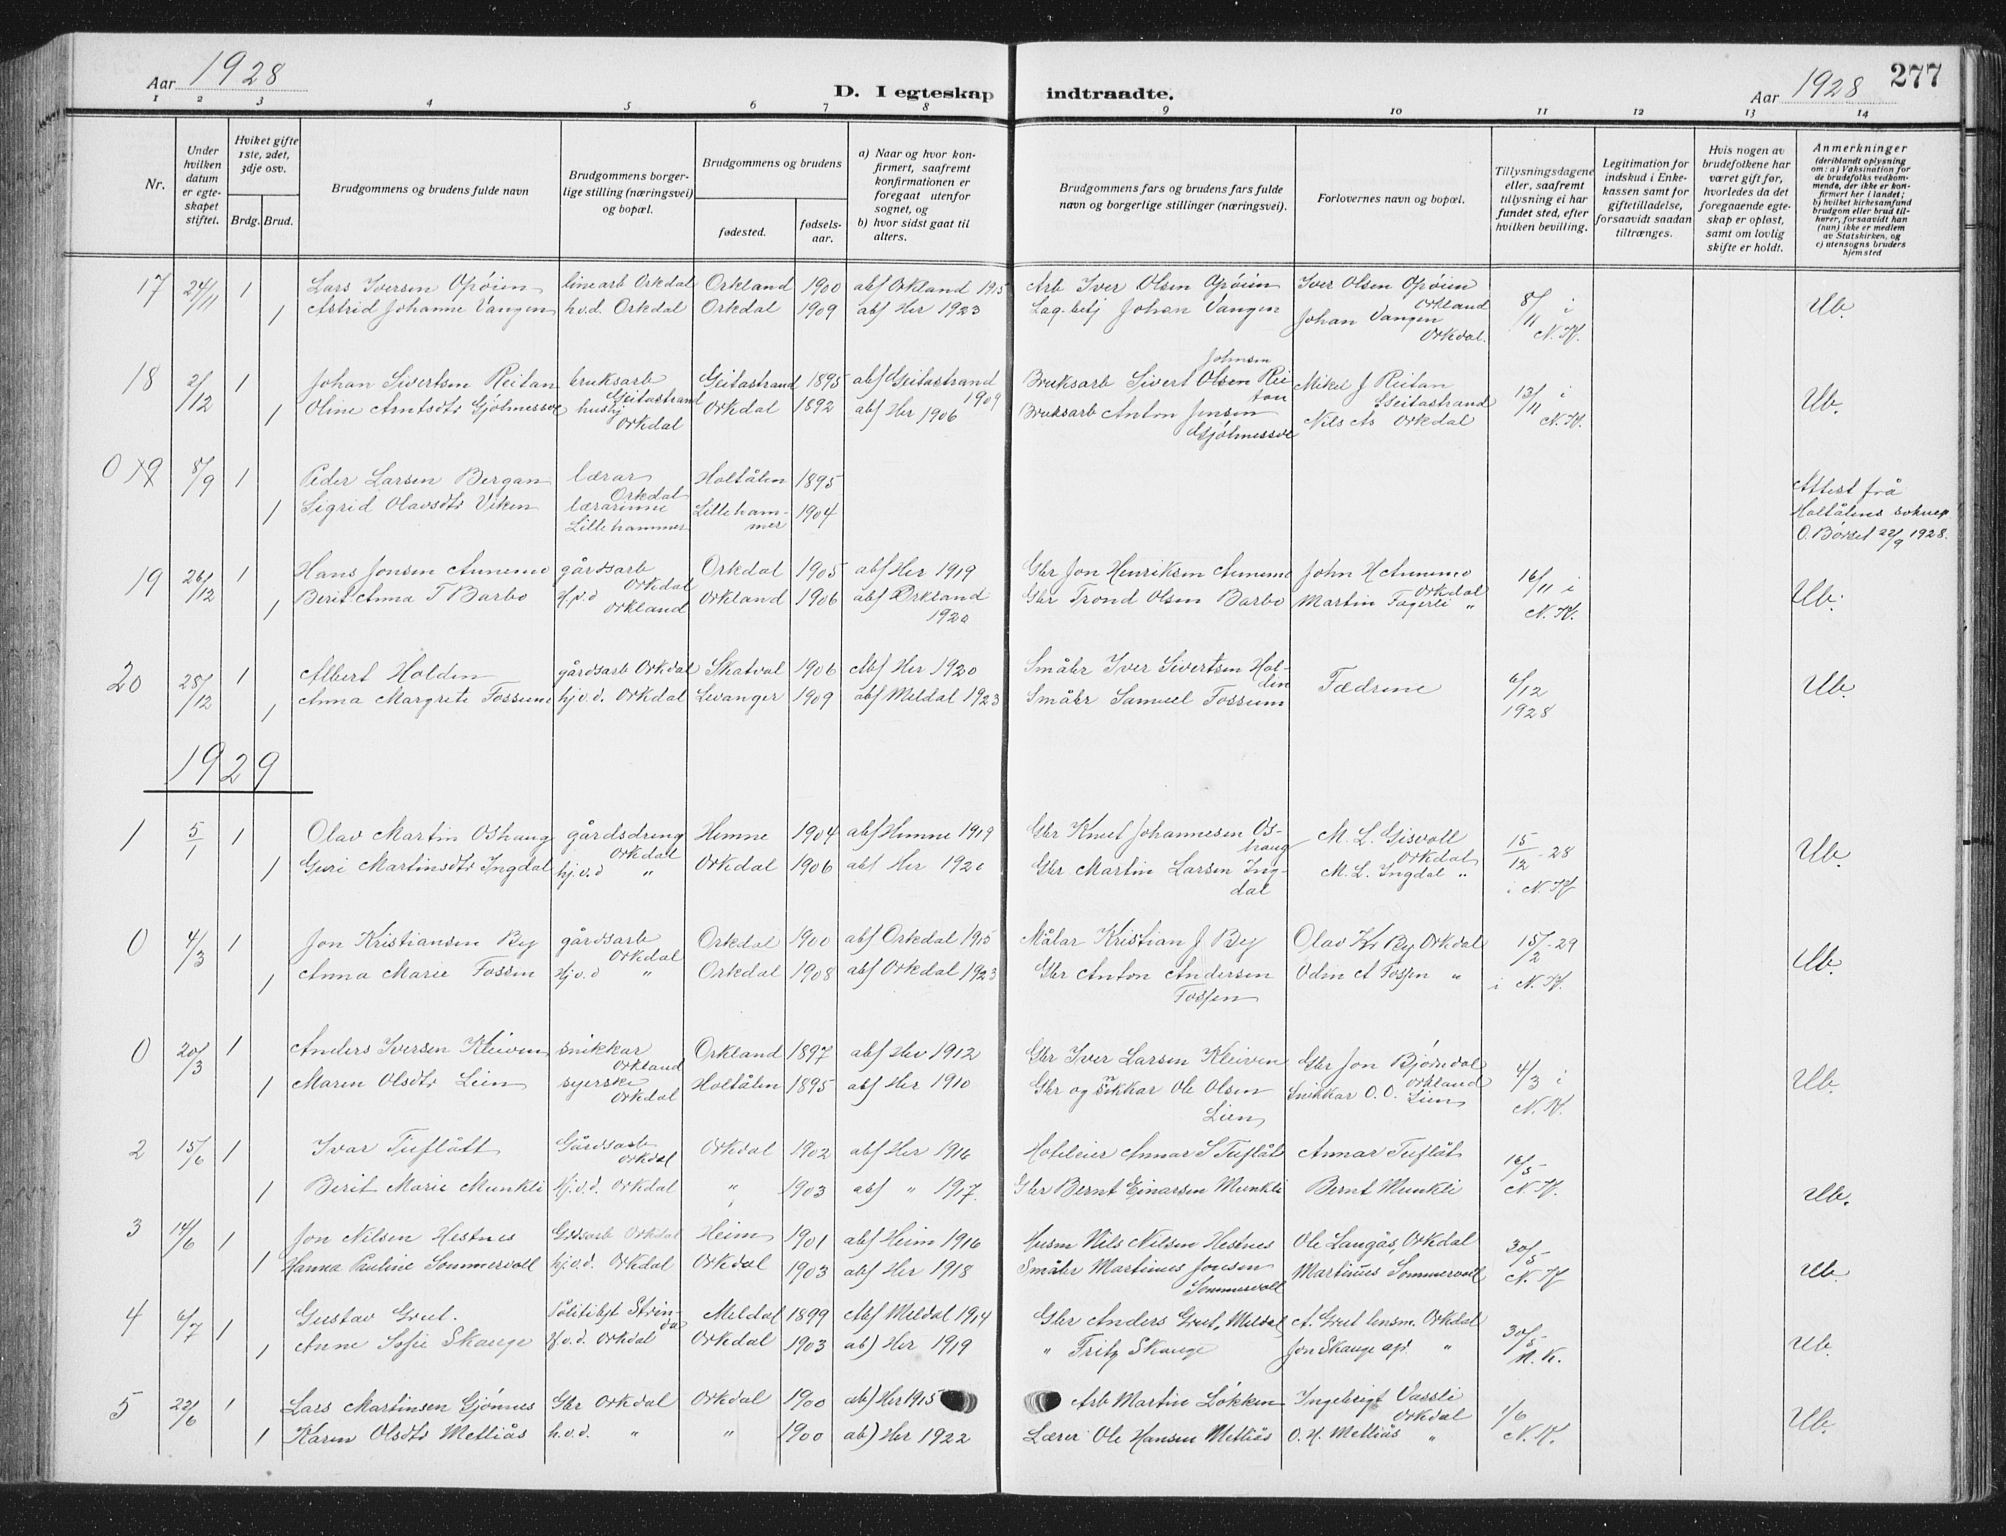 Aar 1928
D. I egteskap indtraadte.
Aar 1928
277
1 2 3 4 5 6 7 8 9 10 11 12 13 14
Nr.
Under hvilken datum er egteskapet stiftet.
Hviket gifte 1ste, 2det, 3dje osv.
Brdg. Brud.
Brudgommens og brudens fulde navn
Brudgommens borgerlige stilling (næringsvei) og bopæl.
Brudgommens og brudens
fødested.
fødselsaar.
a) Naar og hvor konfirmert, saafremt konfirmationen er foregaat utenfor sognet, og
b) hvor sidst gaat til alters.
Brudgommens fars og brudens fars fulde navn og borgerlige stillinger (næringsvei).
Forlovernes navn og bopæl.
Tillysningsdagene eller, saafremt tillysning ei har fundet sted, efter hvilken bevilling.
Legitimation for indskud i Enkekassen samt for giftetilladelse, forsaavidt saadan tiltrænges.
Hvis nogen av brudefolkene har været gift før, hvorledes da det foregaaende egteskap er opløst, samt om lovlig skifte er holdt.
Anmerkninger
(deriblandt oplysning om: a) Vaksination for de brudefolks vedkommende, der ikke er konfirmert her i landet; b) hvilket kirkesamfund brudgom eller brud tilhører, forsaavidt han (hun) ikke er medlem av Statskirken, og c) utensogns bruders hjemsted
17 24/11 1 Lars Iversen Opöien linearb Orkdal Orkland 1900 abf Orkland 1915 Arb Iver Olsen Opöien Iver Olsen Opöien Orkland 8/11 i N.K. Ub.
1 Astrid Johanne Vangen h.v.d. Orkdal Orkdal 1909 abf Her 1923 Lag.betj Johan Vangen Johan Vangen Orkdal.
18 2/12 1 Johan Sivertsen Reitan bruksarb Geitastrand Geitastrand 1895 abf Geitastrand 1909 Bruksarb Sivert Olsen Johnsen Reitan Mikel J Reitan Geitastrand 13/11 i N.K. Ub.
1 Oline Antsdtr Gjølmessve hushj Orkdal Orkdal 1892 abf Her 1906 Bruksarb Anton Jensen Gjølmessve Nils As Orkdal
0 19 8/9 1 Peder Larsen Bergan lærar Orkdal Holtålen 1895
1 Sigrid Olavsdtr Viken lærarinne Lillehammer Lillehammer 1904
Attest frå Holtålens soknepr O. Børset 22/9 1928.
19 26/12 1 Hans Jonsen Aunemo gårdsarb Orkdal Orkdal 1905 abf Her 1919 Gbr Jon Henriksen Aunemo John H Aunemo Orkdal 16/11 i N.K. Ub.
1 Berit Anna T Barbo Hj.v.d Orkland Orkland 1906 abf Orkland 1920 Gbr Trond Olsen Barbo Martin Fagerli "
20 28/12 1 Albert Holden gårdsarb Orkdal Skatval 1906 Abf Her 1920 Småbr Iver Sivertsen Holden Fædrene 6/12 1928 Ub.
1 Anna Margrete Fossum hj.v.d. Orkdal Levanger 1909 abf Meldal 1923 Småbr Samuel Fossum
1929
1 5/1 1 Olav Martin Oshaug gårdsdreng Orkdal Hemne 1904 abf Hemne 1919 Gbr Knut Johannesen Oshaug M. L. Gisvoll Orkdal 15/12-28 i N.K Ub.
1 Guri Martinsdtr Ingdal hj.v.d " Orkdal 1906 abf Her 1920 Gbr Martin Larsen Ingdal M. L. Ingdal "
0 4/3 1 Jon Kristiansen By gårdsarb Orkdal Orkdal 1900 abf Orkdal 1915 Målar Kristian J By Olav Kr By Orkdal 15/2-29 i N.K. Ub.
1 Anna Marie Fossen Hj.v.d " Orkdal 1908 abf Orkdal 1923 Gbr Anton Andersen Fossen Odin A Fossen "
0 20/3 1 Anders Iversen Kleiven snikkar Orkland Orkland 1897 abf Her 1912 Gbr Iver Larsen Kleiven Gbr Jon Bjørndal Orkland 4/3 i N.K. Ub.
1 Maren Olsdtr Lien syerske Orkdal Holtålen 1895 abf Her 1910 Gbr og snikkar Ole Olsen Lien Snikkar O. O. Lien
2 15/6 1 Ivar Tuflått Gårdsarb Orkdal Orkdal 1902 abf Her 1916 Hoteleier Annar S Tuflåt Annar Tuflåt 16/5 N.K.
1 Berit Marie Munkli Hj.v.d. Orkdal " 1903 abf " 1917. Gbr Bernt Einarsen Munkli Bernt Munkli Ub.
3 14/6 1 Jon Nilsen Hestnes Grdsarb Orkdal Heim 1901 abf Heim 1916 Husm Nils Nilsen Hestnes Ole Langås, Orkdal 30/5 N.K Ub.
1 Hanna Pauline Sommervoll hj.v.d. Orkdal Orkdal 1903 abf Her 1918 Småbr Martinus Jonsen Sommervoll Martinus Sommervoll
4 6/7 1 Gustav Grut. Politibet Strinda Meldal 1899 Abf Meldal 1914 Gbr Anders Grut, Meldal A. Grut lensm. Orkdal 30/5 N.K. Ub.
1 Anne Sofie Skauge Hj.v.d. Orkdal Orkdal 1903 ab) Her 1919 " Fritz Skauge Jon Skauge "
5 22/6 1 Lars Martinsen Gjönnes Gbr Orkdal Orkdal 1900 ab) Her 1915 Arb Martin Løkken Ingebrigt Vassli Orkdal 1/6 N.K. Ub.
1 Karen Olsdtr Metliås h.v.d. " " 1900 ab) Her 1922 Lærer Ole Hansen Metliås O. H. Metliås "